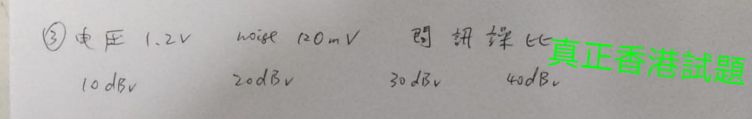 ③ 電压 1.2V noise 120mV 問訊譟比
真正香港試題
10dBv 20dBv 30dBv 40dBv